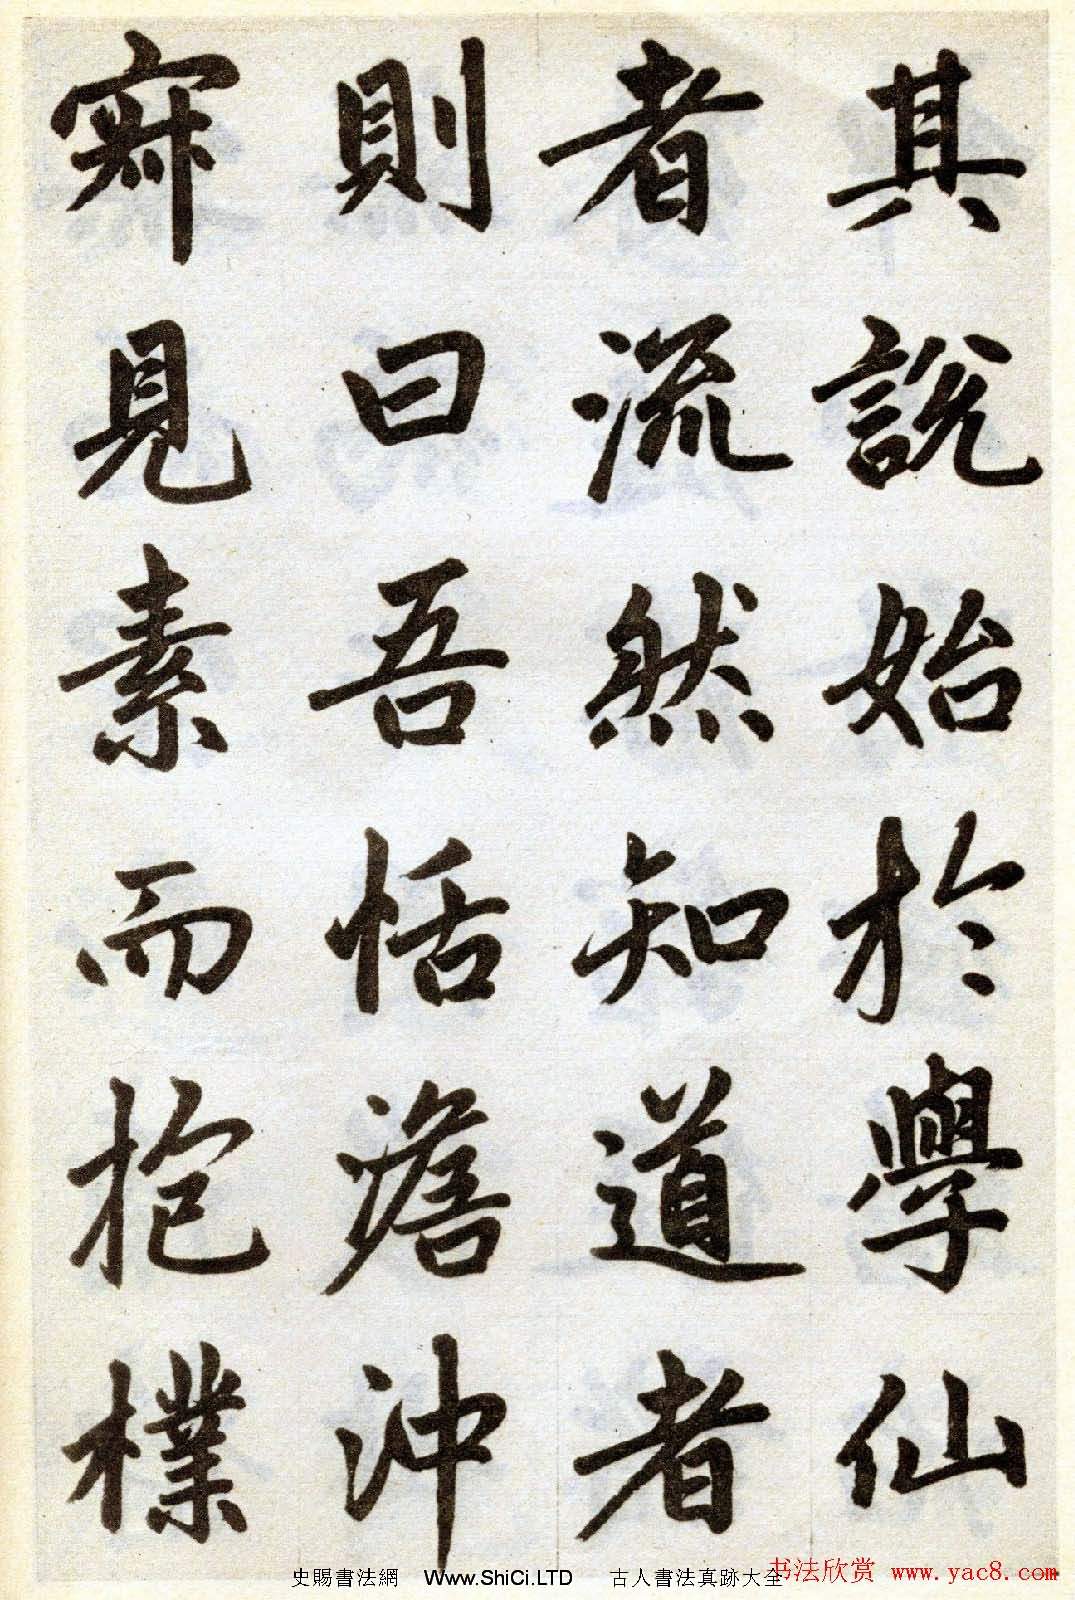 其說始於學仙
者流然知道者
則曰吾恬澹沖
寂見素而抱樸
史賜書法網 Www.ShiCi.LTD 古人書法真跡大全
书法欣赏 www.yac8.com